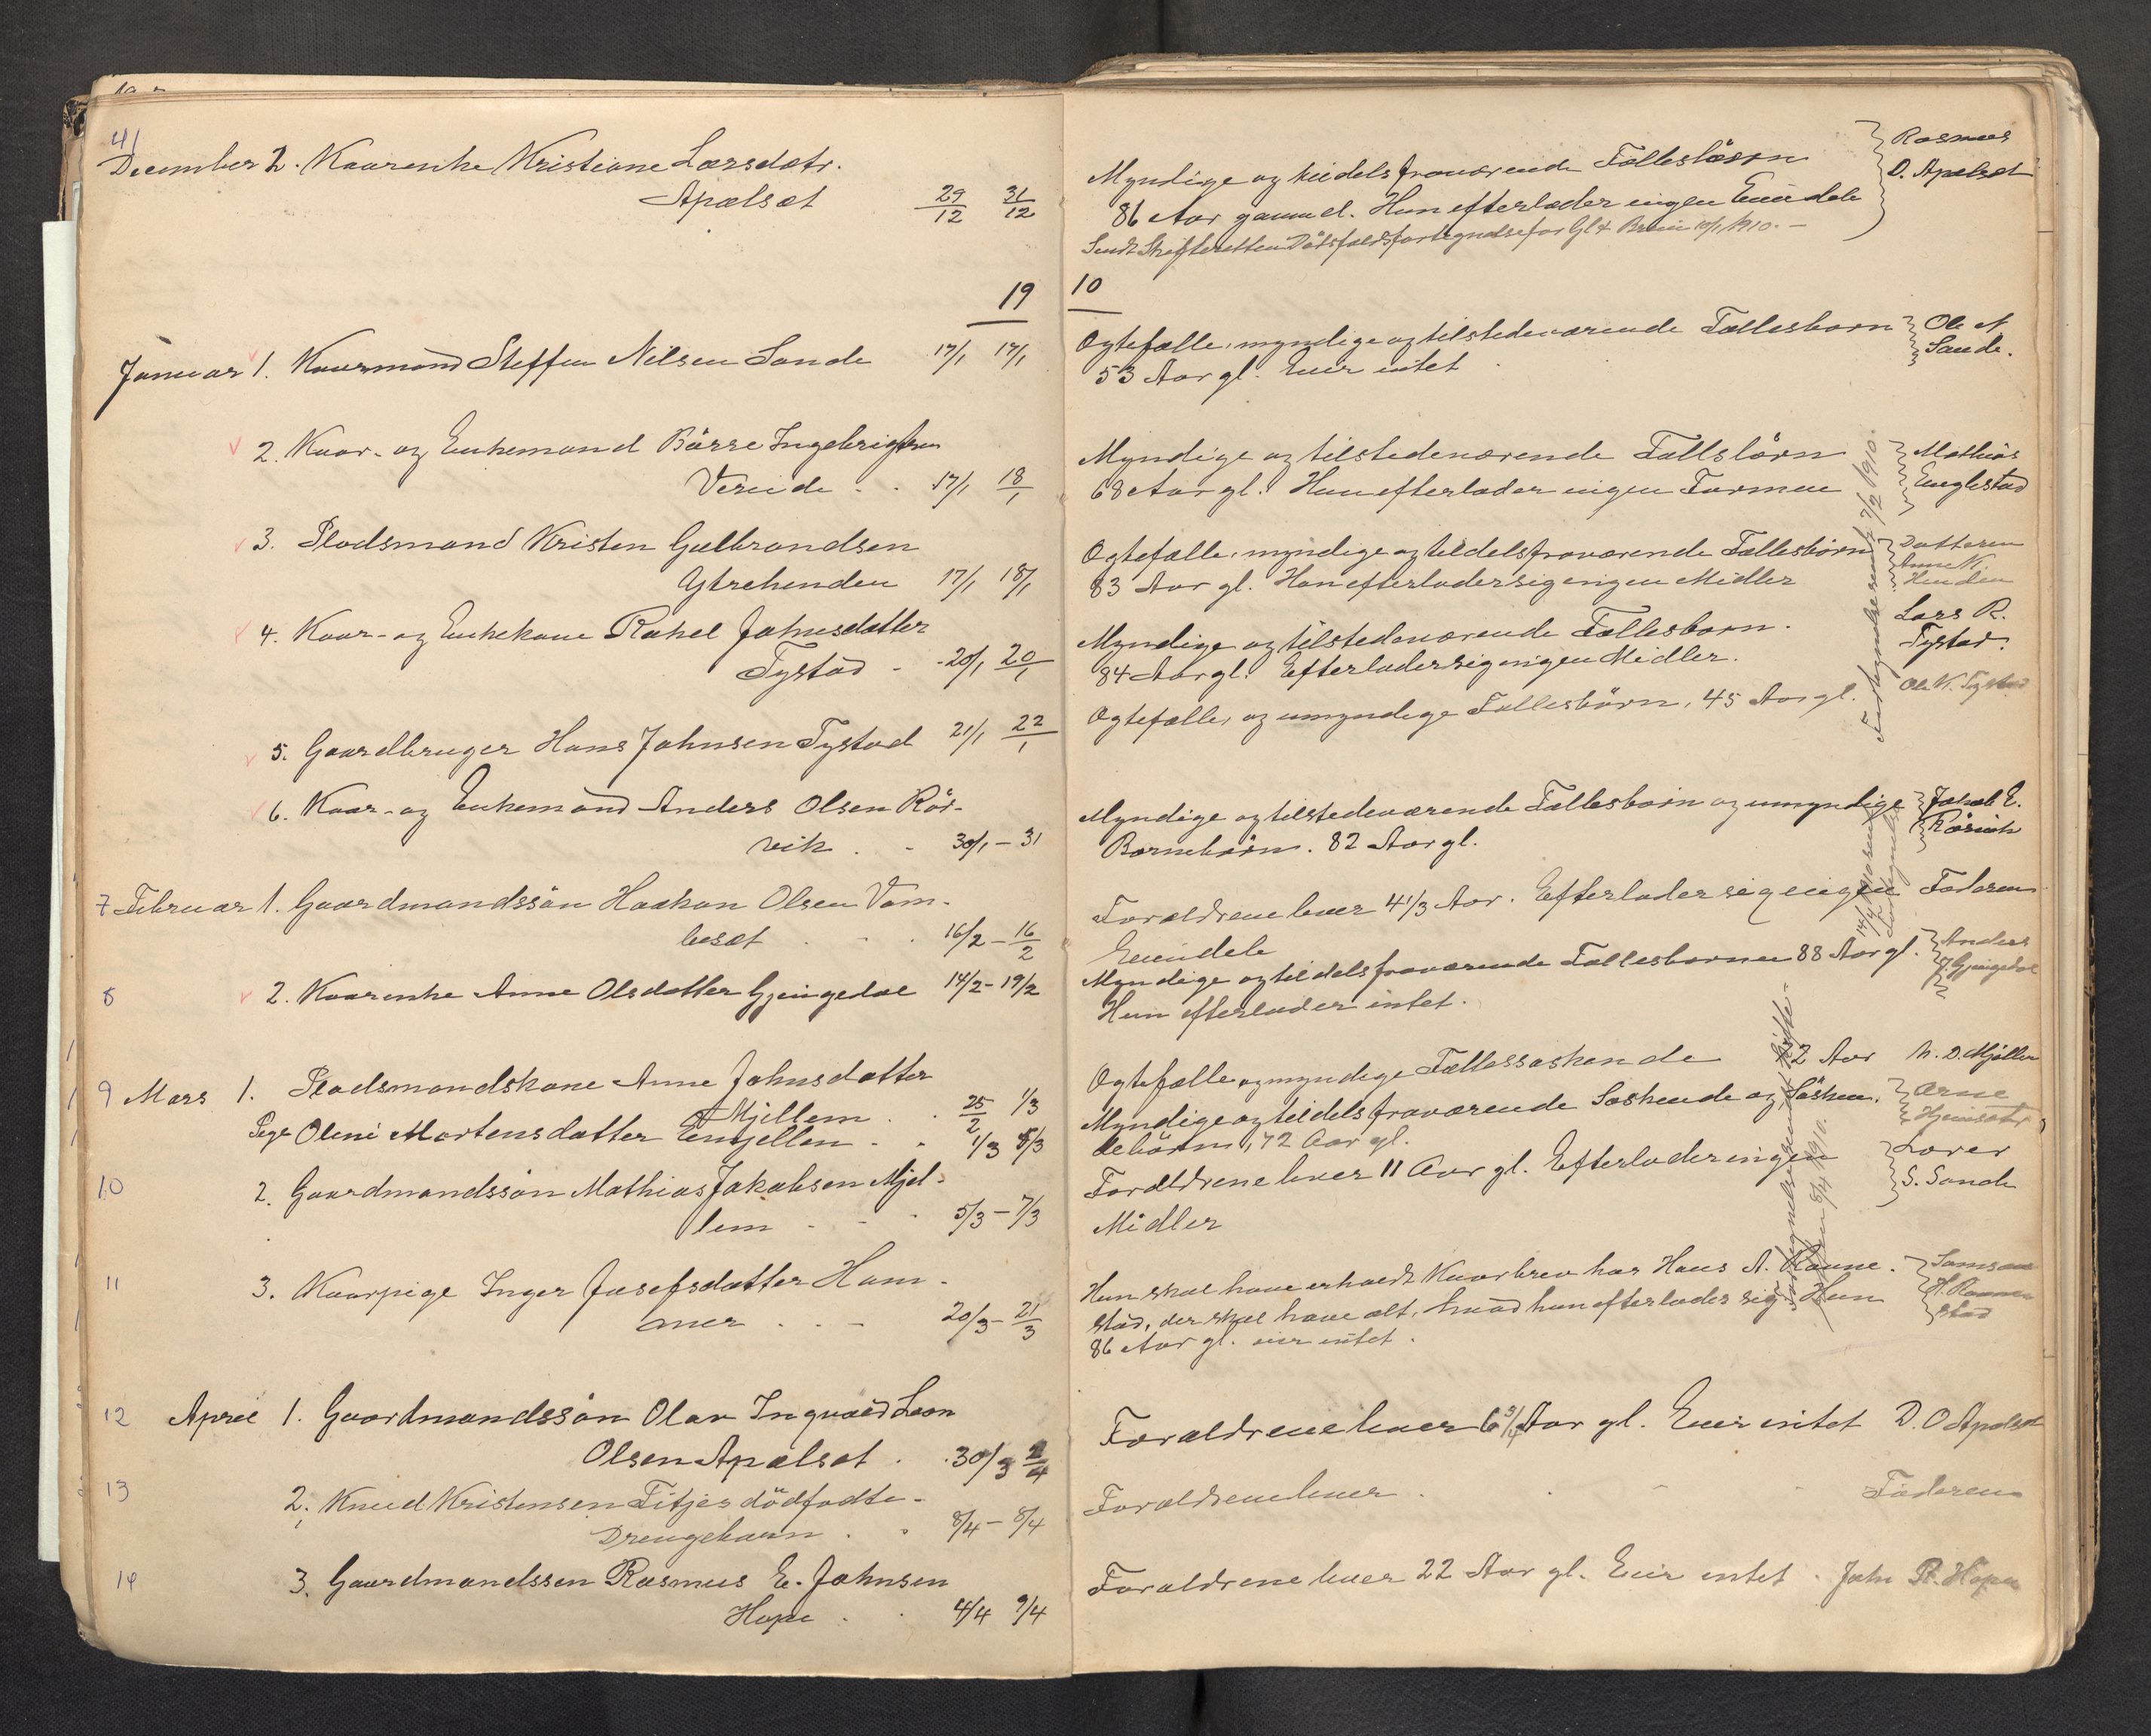 41
December 2. Kaarenke Kristiane Larsdatr.
Apalset 29/12 31/12
19
Januar 1. Kaarmand Steffen Nilsen Sande 17/1 17/1
2. Kaar- og Enkemand Börre Ingebrigtsen
Vereide . . 17/1 18/1
3. Pladsmand Kristen Gulbrandsen
Ytrehenden 17/1 18/1
4. Kaar- og Enkekone Rahel Johnsdatter
Tystad - 20/1 20/1
5. Gaardbruger Hans Johnsen Tystad 21/1 22/1
6. Kaar- og Enkemand Anders Olsen Rör-
vik . . 30/1 - 31
7 Februar 1. Gaardmandssön Haakon Olsen Vom-
besæt . . . 16/2 - 16/2
8 2. Kaarenke Anne Olsdatter Gjengedal 14/2 - 19/2
9 Mars 1. Pladsmandskone Anne Johnsdatter
Mjellem . . 25/2 1/3
Pige Oline Mortensdatter . . 1/3 8/3
10 2. Gaardmandssön Mathias Jakobsen Mjel-
lem . . . 5/3 - 7/3
11 3. Kaarpige Inger Josefsdatter Ham-
mer . . - 20/3 - 21/3
12 April 1. Gaardmandssön Olav Ingvald Leon
Olsen Apalset . . 30/3 2/4
13 2. Knud Kristensen Fitjes dödfødte
Drengebarn . . 8/4 - 8/4
14 3. Gaardmandssen Rasmus E. Johnsen
Hope . . 4/4 9/4
Myndige og tildels fraværende Fællesbörn
86 Aar gammel. Hun efterlader ingen Eiendele
Sendt Skifteretten Dödsfaldsfortegnelse for Gl 4 10/1 1910. -
Rasmus
D. Apalset
10
Ogtefælle, myndige og tilstedeværende Fællesborn
53 Aar gl. Eier intet
Ole N.
Sande.
Myndige og tilstedeværende Fallsbörn
68 Aar gl. Han efterlader ingen Formue
Mathias
Englestad
Ogtefælle, myndige og tildels fraværende Fællesbörn
83 Aar gl. Han efterlader sig ingen Midler
Datteren
Anne K.
Henden
Myndige og tilstedeværende Fællesborn.
84 Aar gl. Efterlader sig ingen Midler.
Lars R.
Tystad.
Ogtefælle, og umyndige Fallesbörn, 45 Aar gl.
Ole K. Tystad
Fortegnelse sendt 7/2 1910.
Myndige og tilstedeværende Fællesborn og umyndige
Barnebörn. 82 Aar gl.
Jakob E.
Rörvik
Foraldrene lever 4 1/3 Aar. Efterlader sig ingen
Eiendele
Faderen
Myndige og tildels fraværende Fallesborn 88 Aar gl.
Hun efterlader intet.
Anders
Gjengedal
Ogtefælle og myndige Fællessoskende 2 Aar
N. D. Mjellem
Myndige og tildels fraværende Soskende og Sösken-
debörn, 72 Aar gl.
Arne
Foraldrene lever 11 Aar gl. Efterlader ingen
Midler
S. Sande
5/4 1910.
Hun skal have erholdt Kaarbrev hos Hans A. Ranne-
stad, der skal have alt, hvad hun efterlader sig. Hun
86 Aar gl. eier intet.
Samson
H. Rannestad
Foraldrene lever 6 3/4 Aar gl. Eier intet D. O Apalset
Foraldrene lever . . - . Faderen
Foraldrene lever 22 Aar gl. Eier intet . John R. Hope